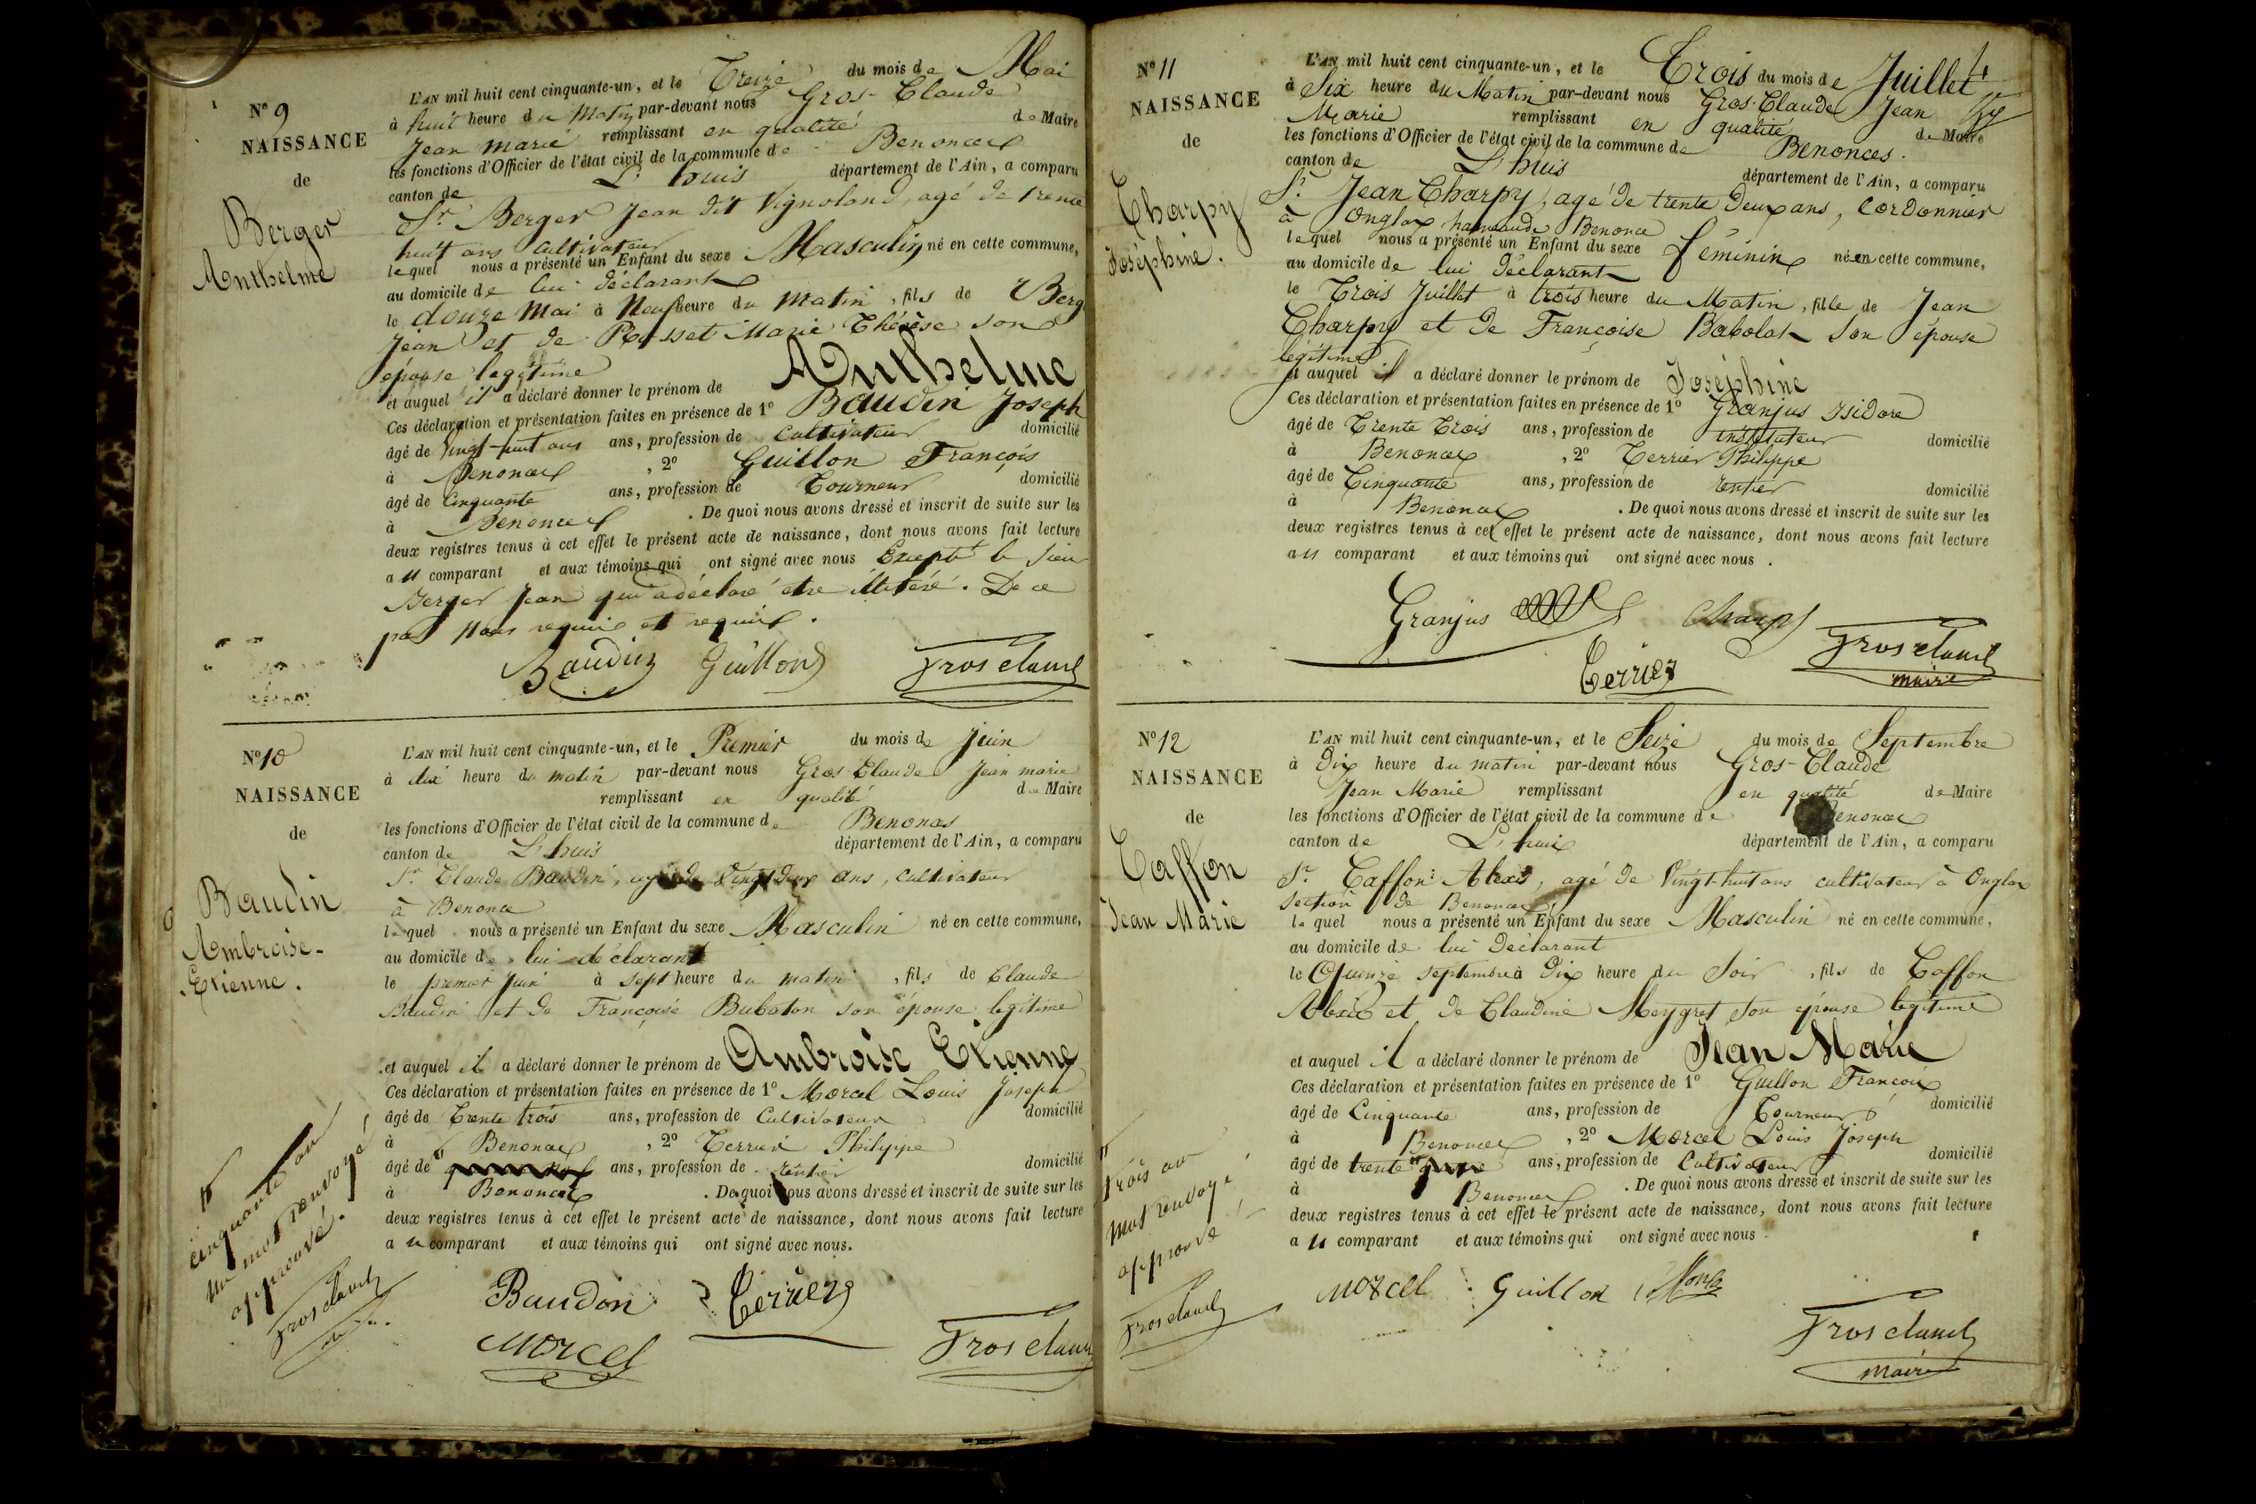 N° 9
NAISSANCE
de
Berger
Anthelme
L'AN mil huit cent cinquante-un, et le Treize du mois de Mai
à huit heure du Matin par-devant nous Gros-Claude
Jean marie remplissant en qualité de Maire
les fonctions d'Officier de l'état civil de la commune de Benonces
canton de L'huis département de l'Ain, a comparu
Sr Berger Jean dit Vignoland, agé de trente
huit ans cultivateur
lequel nous a présenté un Enfant du sexe Masculin né en cette commune,
au domicile de lui déclarant
le douze Mai à Neuf heure du matin, fils de Berg
Jean et de Rosset Marie Thérèse son
épouse legitime
et auquel il a déclaré donner le prénom de Anthelme
Ces déclaration et présentation faites en présence de 1° Baudin Joseph
âgé de vingt-huit ans ans, profession de Cultivateur domicilié
à Benonces, 2° Guillon François
âgé de Cinquante ans, profession de Tourneur domicilié
à Benonces. De quoi nous avons dressé et inscrit de suite sur les
deux registres tenus à cet effet le présent acte de naissance, dont nous avons fait lecture
au comparant et aux témoins qui ont signé avec nous Excepté le sieur
Berger Jean qui a déclaré etre illitéré. De ce
par Nous requis et requis.
Baudin Guillon Grosclaude
N° 10
NAISSANCE
de
Baudin
Ambroise-
Etienne.
L'AN mil huit cent cinquante-un, et le Premier du mois de Juin
à dix heure du matin par-devant nous Gros-Claude Jean marie
remplissant en qualité de Maire
les fonctions d'Officier de l'état civil de la commune de Benonces
canton de L'huis département de l'Ain, a comparu
Sr Claude Baudin, agé de Vingt deux ans, cultivateur
à Benonce
lequel nous a présenté un Enfant du sexe Masculin né en cette commune,
au domicile de lui déclarant
le premier juin à sept heure du matin, fils de Claude
Baudin et de Françoise Bubaton son épouse legitime
et auquel il a déclaré donner le prénom de Ambroise Etienne
Ces déclaration et présentation faites en présence de 1° Morcel Louis Joseph
âgé de Trente trois ans, profession de Cultivateur domicilié
à Benonces, 2° Terrier Philippe
âgé de ans, profession de rentier domicilié
à Benonces. De quoi nous avons dressé et inscrit de suite sur les
deux registres tenus à cet effet le présent acte de naissance, dont nous avons fait lecture
au comparant et aux témoins qui ont signé avec nous.
cinquante an
un mot renvoyé
approuvé.
Grosclaude
Baudin Terrier
Morcel Grosclaude
N° 11
NAISSANCE
de
Charpy
Joséphine.
L'AN mil huit cent cinquante-un, et le Trois du mois de Juillet
à Six heure du Matin par-devant nous Gros-Claude Jean
Marie remplissant en qualité de Maire
les fonctions d'Officier de l'état civil de la commune de Benonces.
canton de L'huis département de l'Ain, a comparu
Sr. Jean Charpy, agé de trente deux ans, cordonnier
à Onglax hameaude Benonce
lequel nous a présenté un Enfant du sexe féminin né en cette commune,
au domicile de lui déclarant
le Trois Juillet à trois heure du Matin, fille de Jean
Charpy et de Françoise Babolat son épouse
légitime
et auquel il a déclaré donner le prénom de Joséphine
Ces déclaration et présentation faites en présence de 1° Granjus Isidore
âgé de Trente Trois ans, profession de instituteur domicilié
à Benonces, 2° Terrier Philippe
âgé de Cinquante ans, profession de rentier domicilié
à Benonces. De quoi nous avons dressé et inscrit de suite sur les
deux registres tenus à cet effet le présent acte de naissance, dont nous avons fait lecture
au comparant et aux témoins qui ont signé avec nous.
Granjus Charpy
Terrier Grosclaude
maire
N° 12
NAISSANCE
de
Caffon
Jean Marie
L'AN mil huit cent cinquante-un, et le Seize du mois de Septembre
à Dix heure du matin par-devant nous Gros-Claude
Jean Marie remplissant en qualité de Maire
les fonctions d'Officier de l'état civil de la commune de Benonces
canton de L'huis département de l'Ain, a comparu
Sr. Caffon Alexis, agé de Vingt-huit ans cultivateur à Onglax
section de Benonces
lequel nous a présenté un Enfant du sexe Masculin né en cette commune,
au domicile de lui déclarant
le Quinze septembre à Dix heure du Soir, fils de Caffon
Alexis et de Claudine Meygret son épouse legitime
et auquel il a déclaré donner le prénom de Jean Marie
Ces déclaration et présentation faites en présence de 1° Guillon François
âgé de Cinquante ans, profession de Tourneur domicilié
à Benonces, 2° Morcel Louis Joseph
âgé de trente ans, profession de Cultivateur domicilié
à Benonces. De quoi nous avons dressé et inscrit de suite sur les
deux registres tenus à cet effet le présent acte de naissance, dont nous avons fait lecture
au comparant et aux témoins qui ont signé avec nous.
trois an
mot renvoyé
approuvé
Grosclaude
Morcel Guillon
Grosclaude
maire